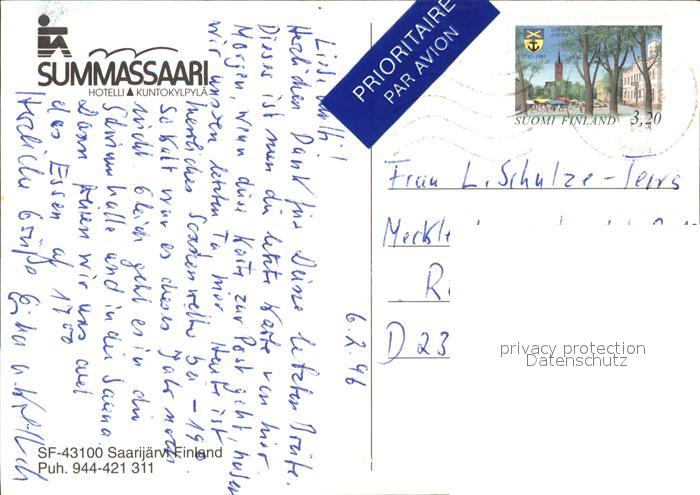 SUMMASSAARI
HOTELLI KUNTOKYLPYLÄ
PRIORITAIRE
PAR AVION
LOVIISA
LOVISA
1745-1995
SUOMI FINLAND 3,20
6.2.96
Herzlichen Dank für Deine letzten Briefe.
Dieses ist nun die letzte Karte von hier.
Morgen, wenn diese Karte zur Post geht, haben
wir unseren letzten Tag hier. Heute ist
herrliches Sonnenwetter bei -19°
So kalt war es dieses Jahr noch
nicht. Gleich geht es in die
Schwimmhalle und in die Sauna.
Dann freuen wir uns auf
das Essen ab 17 00
Herzliche Grüße
Frau L. Schulze-
Meckle
R
D 23
privacy protection
Datenschutz
SF-43100 Saarijärvi Finland
Puh. 944-421 311